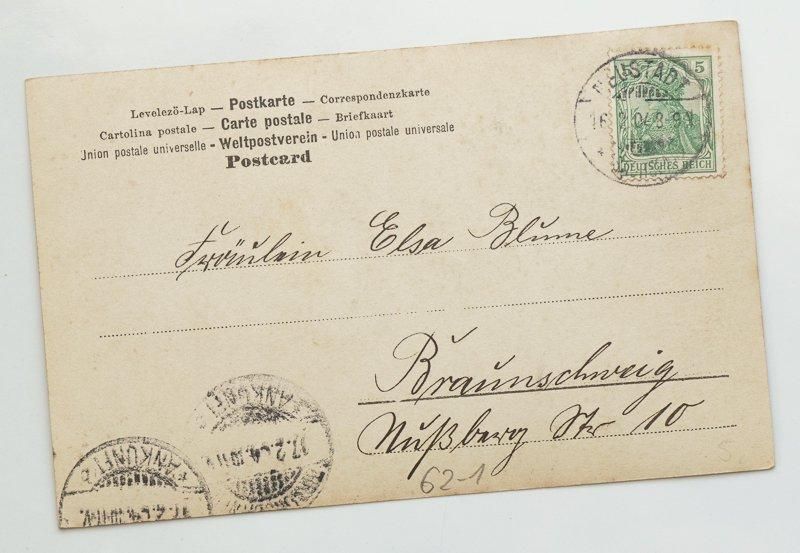 Levelező-Lap — Postkarte — Correspondenzkarte
Cartolina postale — Carte postale — Briefkaart
Union postale universelle - Weltpostverein - Union postale universale
Postcard
5 5
DEUTSCHES REICH
NEUSTADT
16.2.04.8-9V
Fräulein Elsa Blume
Braunschweig
Nußberg Str 10
62-1
ANKUNFT
17.2.04.10-11V.
ANKUNFT